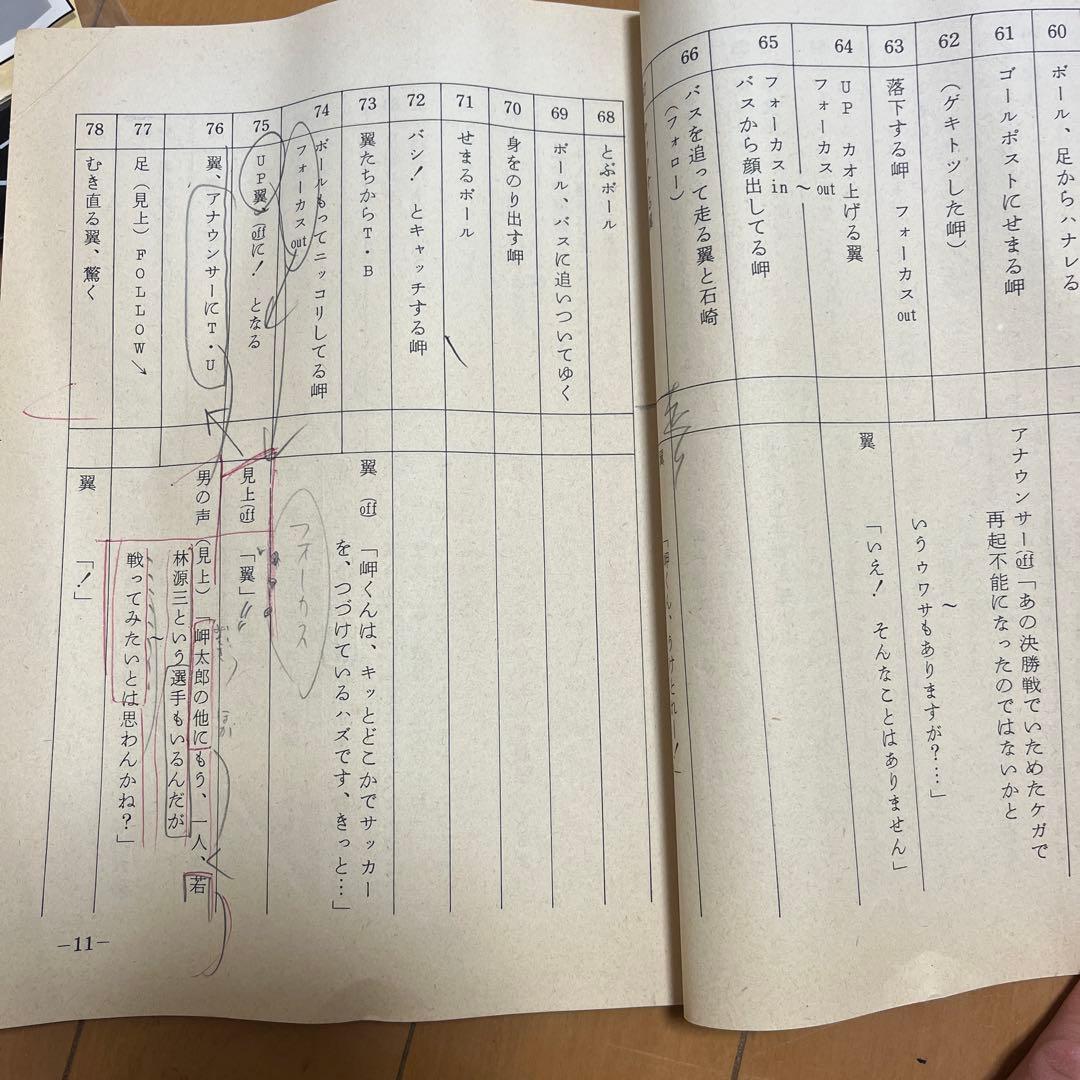 60
ボール、足からハナレる
61
ゴールポストにせまる岬
62
(ゲキトツした岬)
63
落下する岬 フォーカスout
64
UP カオ上げる翼
フォーカスout
〜
65
フォーカスin
バスから顔出してる岬
66
バスを追って走る翼と石崎
(フォロー)
アナウンサー(off)「あの決勝戦でいためたケガで
再起不能になったのではないかと
〜
いうウワサもありますが?‥‥」
翼
「いえ! そんなことはありません」
翼
68
とぶボール
69
ボール、バスに追いついてゆく
70
身をのり出す岬
71
せまるボール
72
バシ! とキャッチする岬
73
翼たちからT・B
74
ボールもってニッコリしてる岬
フォーカスout
75
UP翼、(off)に! となる
76
翼、アナウンサーにT・U
77
足(見上)FOLLOW↘
78
むき直る翼、驚く
翼(off)「岬くんは、キッとどこかでサッカー
を、つづけているハズです、きっと‥‥」
フォーカス
見上(off)「翼」
男の声(見上)「岬太郎の他にもう、一人、若
林源三という選手もいるんだが
〜
戦ってみたいとは思わんかね?」
翼「!」
−11−